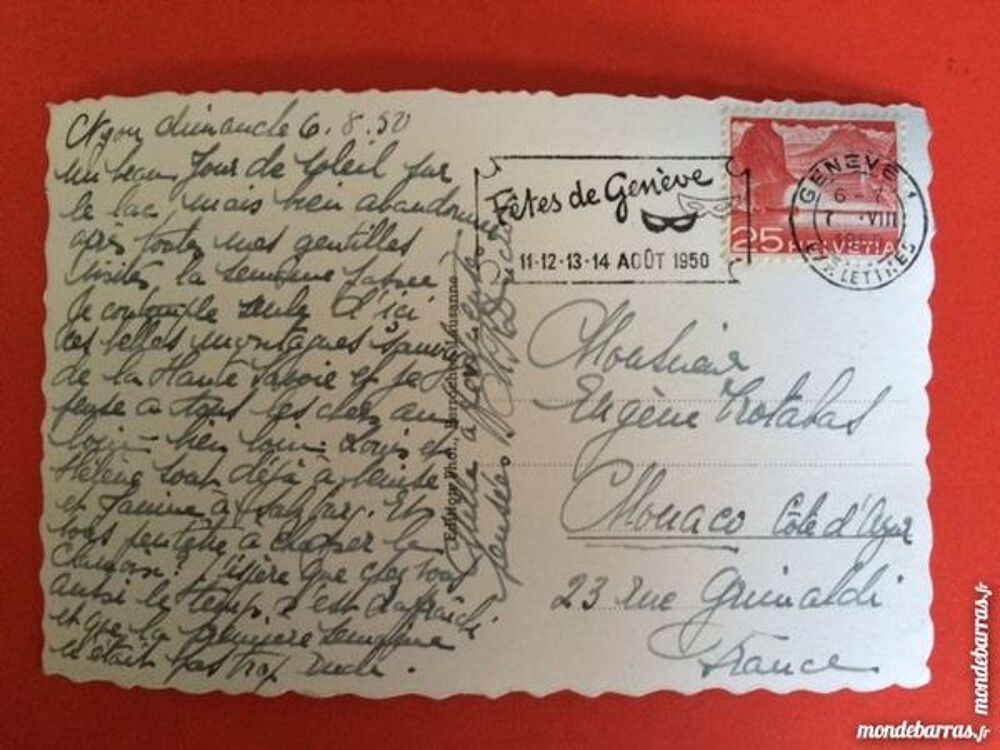 Nyon dimanche 6.8.50
Un beau jour de soleil sur
le lac, mais bien abandonnée
après toutes mes gentilles
visites la semaine passée
Je contemple seule d'ici
ces belles montagnes
de la Haute Savoie et je
pense à tous les chers au
loin - bien loin. Louis et
Hélène sont déjà à Venise
et Janine à Et
vous peut être à la
J'espère que chez vous
aussi le temps s'est rafraîchi
et que la première semaine
n'était pas trop rude.
Mille affectueuses
pensées
Edition Phot., Perrochet, Lausanne
Fêtes de Genève
11-12-13-14 AOÛT 1950
25 HELVETIA
GENÈVE 1
7 VIII
LETTRES
Monsieur
Eugène Trotabas
Monaco Côte d'Azur
23 rue Grimaldi
France
mondebarras.fr
mondebarras.fr